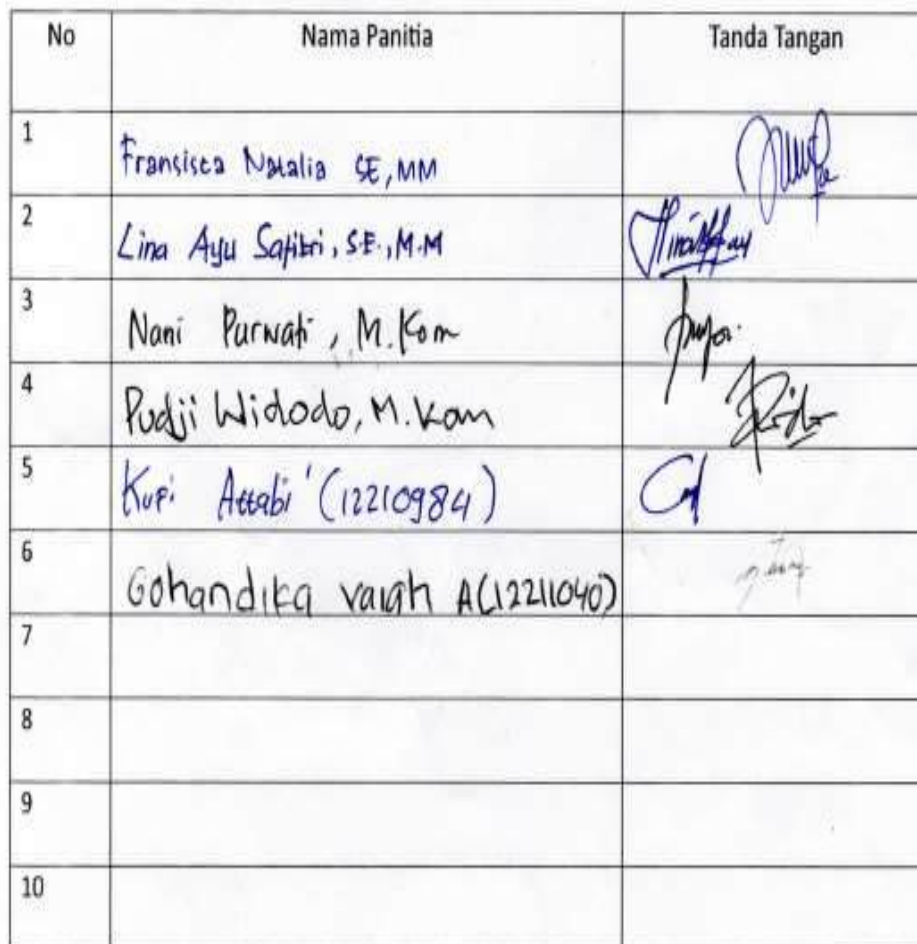 No Nama Panitia Tanda Tangan
1 Fransisca Natalia SE, MM
2 Lina Ayu Safitri, S.E., M.M
3 Nani Purwati, M.Kom
4 Pudji Widodo, M.Kom
5 Kufi Attabi' (12210984)
6 Gohandika A(12211040)
7
8
9
10